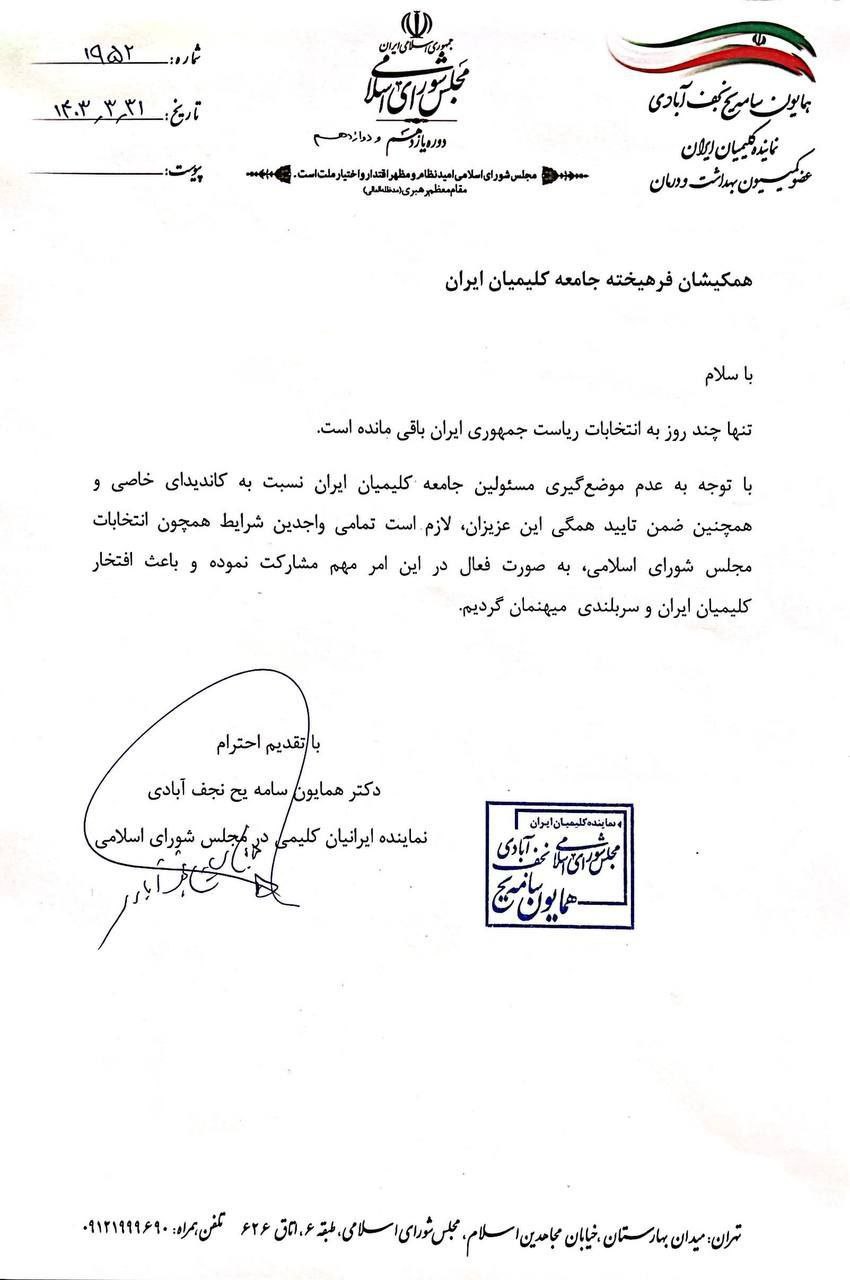 جمهوری اسلامی ایران
مجلس شورای اسلامی
دوره یازدهم و دوازدهم
مجلس شورای اسلامی امید نظام و مظهر اقتدار و اختیار ملت است.
مقام معظم رهبری (مدظله‌العالی)
همایون سامه‌یح نجف آبادی
نماینده کلیمیان ایران
عضو کمیسیون بهداشت و درمان
شماره: ۱۹۵۲
تاریخ: ۱۴۰۳,۳,۳۱
پیوست:
همکیشان فرهیخته جامعه کلیمیان ایران
با سلام
تنها چند روز به انتخابات ریاست جمهوری ایران باقی مانده است.
با توجه به عدم موضع‌گیری مسئولین جامعه کلیمیان ایران نسبت به کاندیدای خاصی و
همچنین ضمن تایید همگی این عزیزان، لازم است تمامی واجدین شرایط همچون انتخابات
مجلس شورای اسلامی، به صورت فعال در این امر مهم مشارکت نموده و باعث افتخار
کلیمیان ایران و سربلندی میهنمان گردیم.
با تقدیم احترام
دکتر همایون سامه یح نجف آبادی
نماینده ایرانیان کلیمی در مجلس شورای اسلامی
نماینده کلیمیان ایران
مجلس شورای اسلامی
نجف آبادی
همایون سامه‌یح
تهران: میدان بهارستان، خیابان مجاهدین اسلام، مجلس شورای اسلامی، طبقه ۶، اتاق ۶۲۶ تلفن همراه: ۰۹۱۲۱۹۹۹۶۹۰